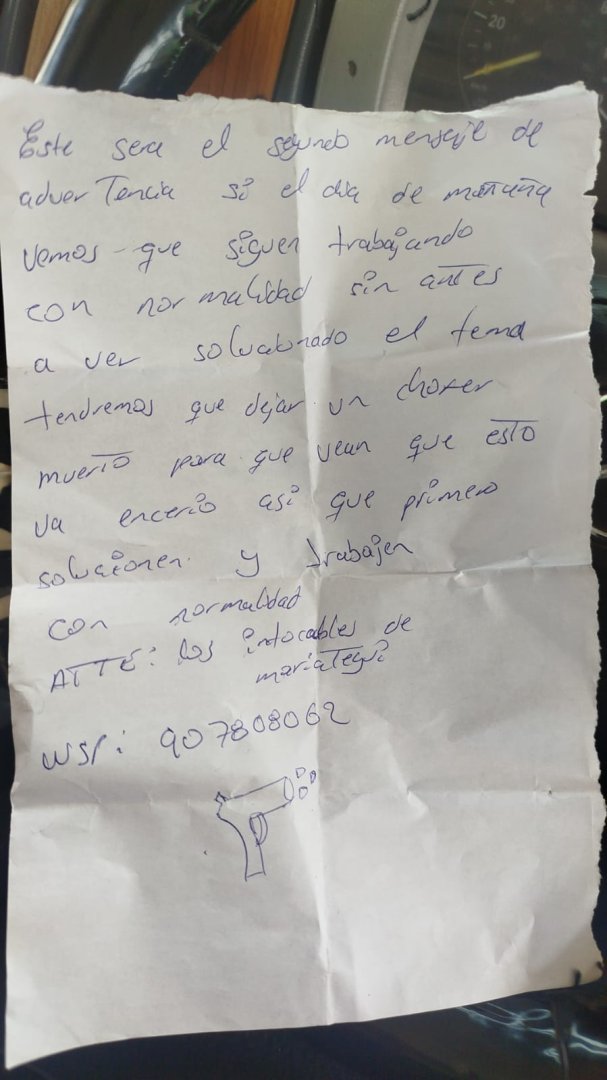 Este sera el segundo mensaje de
adverTencia si el dia de mañana
vemos que siguen trabajando
con normalidad sin antes
a ver solucionado el tema
tendremos que dejar un chofer
muerto para que vean que esto
va encerio asi que primero
solucionen y trabajen
con normalidad
ATTE: los intocables de
mariaTegui
wsp: 907808062
20